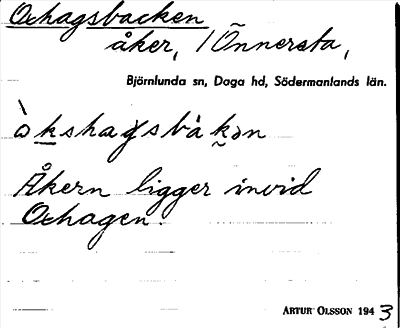 Oxhagsbacken
åker, / Önnersta,
Björnlunda sn, Daga hd, Södermanlands län.
Åkern ligger invid
Oxhagen.
ARTUR OLSSON 1943